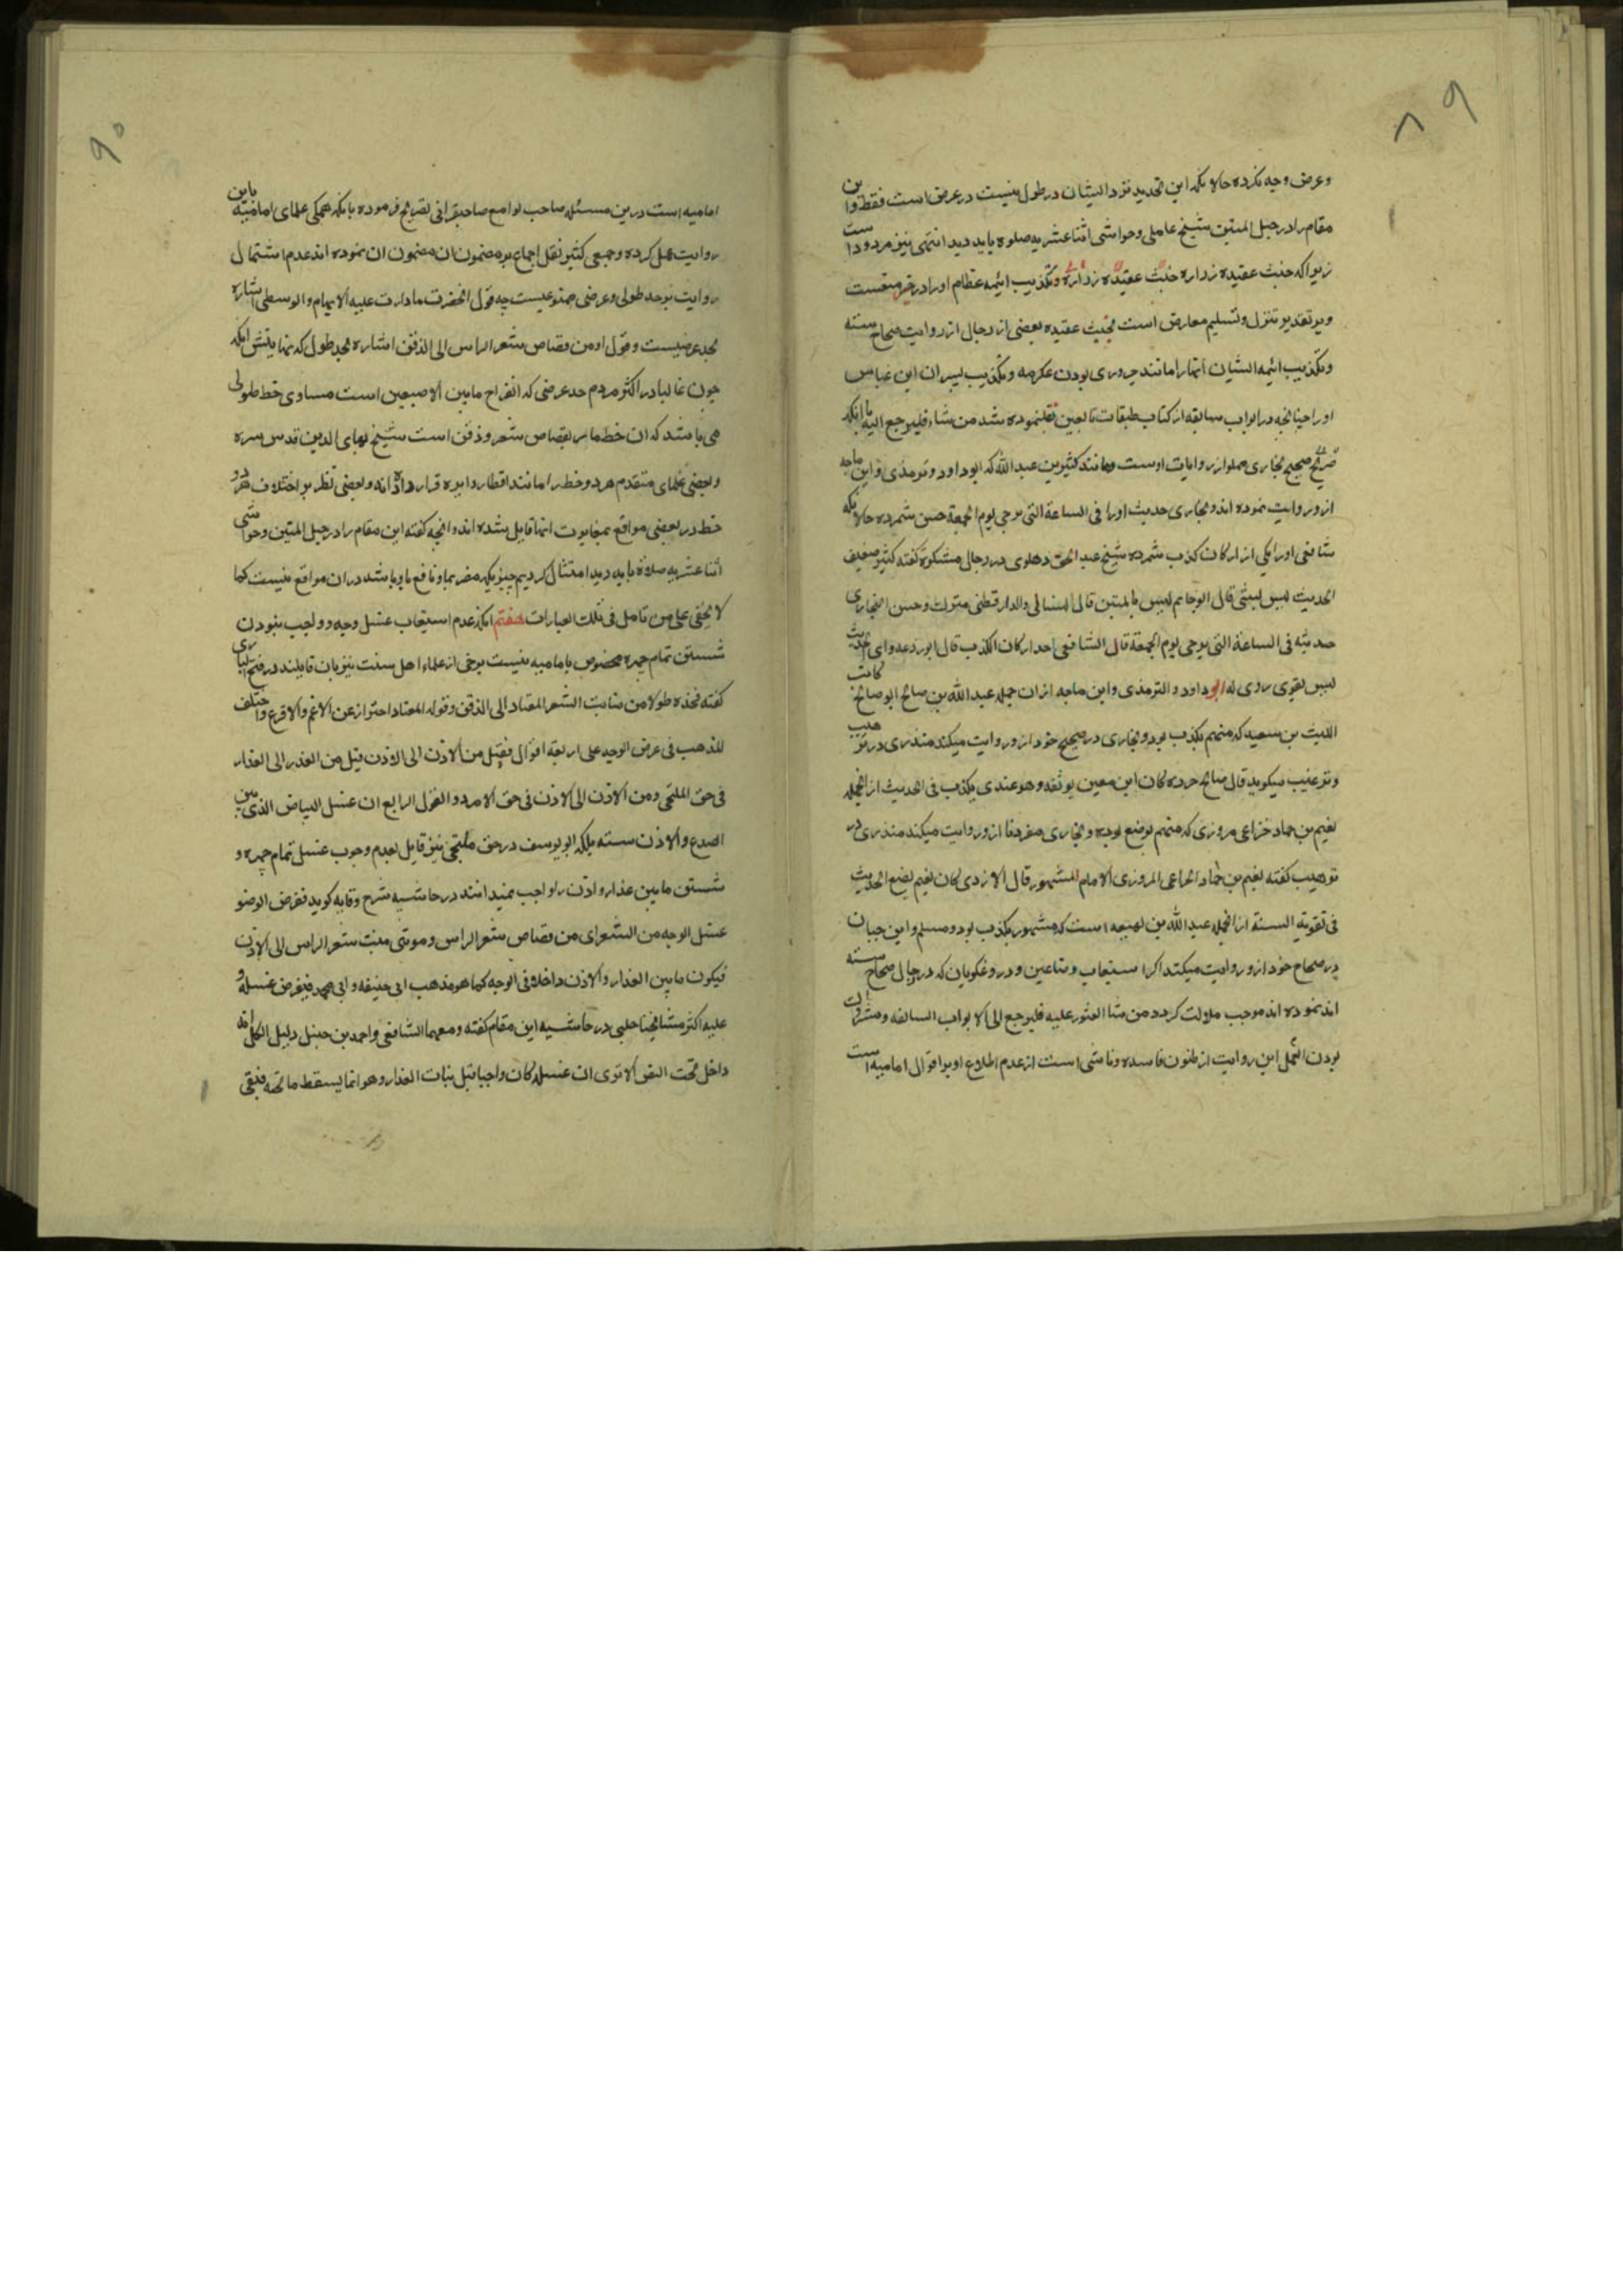 ۸۹
وعرض وجه نکرده حالانکه این تحدید نزد ایشان در طول نیست در عرض است فقط واین
مقام را در حبل المتین شیخ عاملی وحواشی اثنا عشریه صلوة باید دید انتهی نیز مردود است
زیرا که خبث عقیده زراره خبث عقیده زراره وتکذیب ائیمه عظام اورا در خیر منعست
وبر تقدیر تنزل وتسلیم معارض است بخبث عقیده بعضی از رجال از روایت صحاح سته
وتکذیب ائیمه ایشان آنها را مانند حروری بودن عکرمه وتکذیب پسران ابن عباس
اورا چنانچه در ابواب سابقه از کتاب طبقات تابعین نقلنموده شد من شاء فلیرجع الیه با آنکه
صحیح بخاری مملو از روایات اوست ومانند کثیر بن عبد الله که ابو داود وترمذی وابن ماجه
ازو روایت نموده اند وبخاری حدیث اورا فی الساعة التی ترجی یوم الجمعة حسن شمرده حالانکه
شافعی اورا یکی از ارکان کذب شمرده شیخ عبد الحق دهلوی در رجال مشکوة گفته کثیر ضعیف
الحدیث لیس بشی قال ابو حاتم لیس بالمتین قال النسائی والدارقطنی متروک وحسن البخاری
حدیثه فی الساعة التی ترجی یوم الجمعة قال الشافعی احد ارکان الکذب قال ابو زرعه واهی الحدیث
لیس بقوی روی له ابو داود والترمذی وابن ماجه ازان جمله عبد الله بن صالح ابو صالح کاتب
اللیث بن سعید که متهم بکذب بود وبخاری در صحیح خود ازو روایت میکند منذری در ترهیب
وترغیب میگوید قال صالح جزره کان ابن معین یوثقه وهو عندی یکذب فی الحدیث از انجمله
نعیم بن حماد خزاعی مروزی که متهم بوضع بوده وبخاری مقرونا ازو روایت میکند منذری در
ترهیب گفته نعیم بن حماد الخزاعی المروزی الامام المشهور قال الازدی کان نعیم یضع الحدیث
فی تقویة السنة از انجمله عبد الله بن لهیعه است که مشهور بکذب بود ومسلم وابن حبان
در صحاح خود ازو روایت میکنند اگر استیعاب وضاعین ودروغگویان که در رجال صحاح سته
اند نموده اند موجب ملالت گردد من شا العثور علیه فلیرجع الی الابواب السالفه ومتروک
بودن العمل این روایت از ظنون فاسده وناشی است از عدم اطلاع او بر اقوال امامیه است
۹۰
امامیه است درین مسئله صاحب لوامع صاحبقرانی تصریح فرموده بانکه همگی علمای امامیه باین
روایت عمل کرده وجمعی کثیر نقل اجماع بر مضمون ان مضمون ان نموده اند عدم اشتمال
روایت بر حد طولی وعرضی ممنوعیست چه قول انحضرت ما دارت علیه الابهام والوسطی اشاره
بحد عرضیست وقول او من قصاص شعر الراس الی الذقن اشاره بحد طول که نهایتش آنکه
چون غالبا در اکثر مردم حد عرضی که انفراج مابین الاصبعین است مساوی خط طولی
می باشد که ان خط مار بقصاص شعر وذقن است شیخ بهای الدین قدس سره
وبعضی علمای متقدم هر دو خط را مانند اقطار دایره قرار داده اند وبعضی نظر بر اختلاف هر دو
خط در بعضی مواقع بمغایرت انها قایل شده اند وانچه گفته این مقام را در حبل المتین وحواشی
اثنا عشریه صلاة باید دید امتثال کردیم چیزیکه مضر بما ونافع باو باشد دران مواقع نیست کما
لا یخفی علی من تامل فی تلک العبارات هفتم آنکه عدم استیعاب غسل وجه وواجب نبودن
شستن تمام چهره مخصوص بامامیه نیست برخی از علماء اهل سنت نیز بان قایلند در فتح الباری
گفته فحده طولا من منابت الشعر المعتاد الی الذقن وقوله المعتاد احتراز عن الاغم والاقرع واختلف
المذهب فی عرض الوجه علی اربعة اقوال فقیل من الاذن الی الاذن قیل من العذار الی العذار
فی حق الملتحی ومن الاذن الی الاذن فی حق الامرد والقول الرابع ان غسل البیاض الذی بین
الصدغ والاذن سنته بلکه ابو یوسف در حق ملتحی نیز قایل بعدم وجوب غسل تمام چهره و
شستن مابین عذار واذن را واجب نمیدانند در حاشیه شرح وقایه گوید ففرض الوضو
غسل الوجه من الشعر ای من قصاص شعر الراس وهو منتهی منبت شعر الراس الی الاذن
فیکون مابین العذار والاذن داخلا فی الوجه کما هو مذهب ابی حنیفه وابی محمد فیفرض غسله و
علیه اکثر مشایخنا حلبی در حاشیه این مقام گفته ومعهما الشافعی واحمد بن حنبل دلیل الکل انه
داخل تحت النص الا تری ان غسله کان واجبا قبل نبات العذار وهو انما یسقط ما تحته فبقی